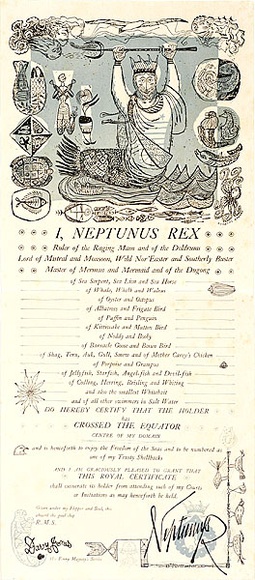 I, NEPTUNUS REX
Ruler of the Raging Main and of the Doldrums
Lord of Mistral and Monsoon, Wild Nor'Easter and Southerly Buster
Master of Merman and Mermaid and of the Dugong
of Sea Serpent, Sea Lion and Sea Horse
of Whale, Whelk and Walrus
of Oyster and Octopus
of Albatross and Frigate Bird
of Puffin and Penguin
of Kittiwake and Mutton Bird
of Noddy and Booby
of Barnacle Goose and Bosun Bird
of Shag, Tern, Auk, Gull, Skuas and of Mother Carey's Chicken
of Porpoise and Grampus
of Jellyfish, Starfish, Angel-fish and Devil-fish
of Codling, Herring, Brisling and Whiting
and also the smallest Whitebait
and of all other swimmers in Salt Water
DO HEREBY CERTIFY THAT THE HOLDER
has
CROSSED THE EQUATOR
CENTRE OF MY DOMAIN
and is henceforth to enjoy the Freedom of the Seas and to be numbered as
one of my Trusty Shellbacks
AND I AM GRACIOUSLY PLEASED TO GRANT THAT
THIS ROYAL CERTIFICATE
shall exonerate its holder from attending such of my Courts
or Initiations as may henceforth be held.
Given under my Flipper and Seal, this
aboard the good ship
R.M.S.
Neptunus
Davy Jones